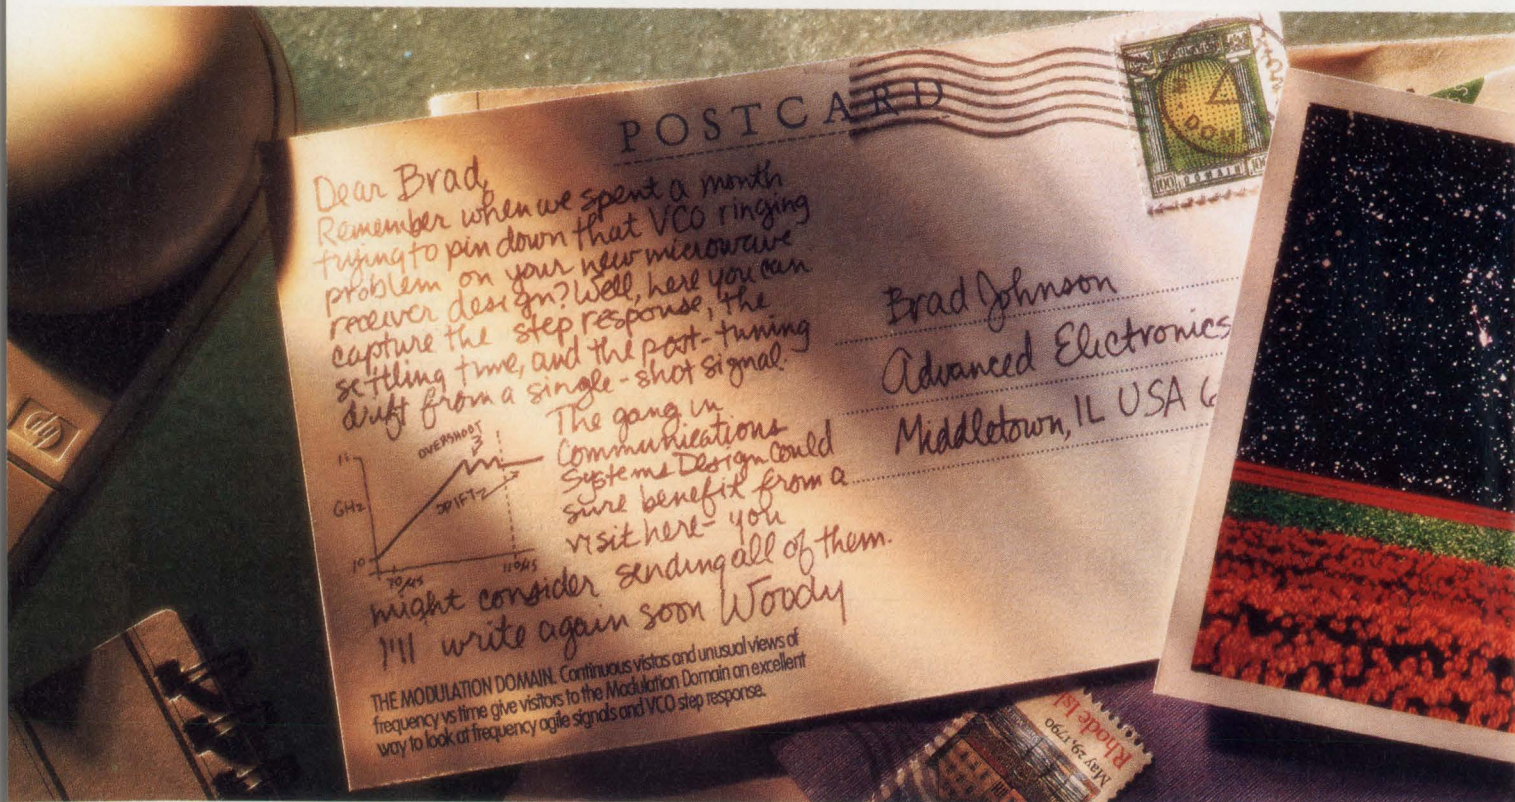 POSTCARD
Dear Brad,
Remember when we spent a month
trying to pin down that VCO ringing
problem on your new microwave
receiver design? Well, here you can
capture the step response, the
settling time, and the post-tuning
drift from a single-shot signal.
The gang in
Communications
Systems Design could
sure benefit from a
visit here - you
might consider sending all of them.
I'll write again soon Woody
OVERSHOOT
11
GHz
DRIFT
10
70µs
110µs
THE MODULATION DOMAIN. Continuous vistas and unusual views of
frequency vs time give visitors to the Modulation Domain an excellent
way to look at frequency agile signals and VCO step response.
Brad Johnson
Advanced Electronics
Middletown, IL USA 6
100 DOMAIN 100
hp
May 29, 1790
Rhode Isl